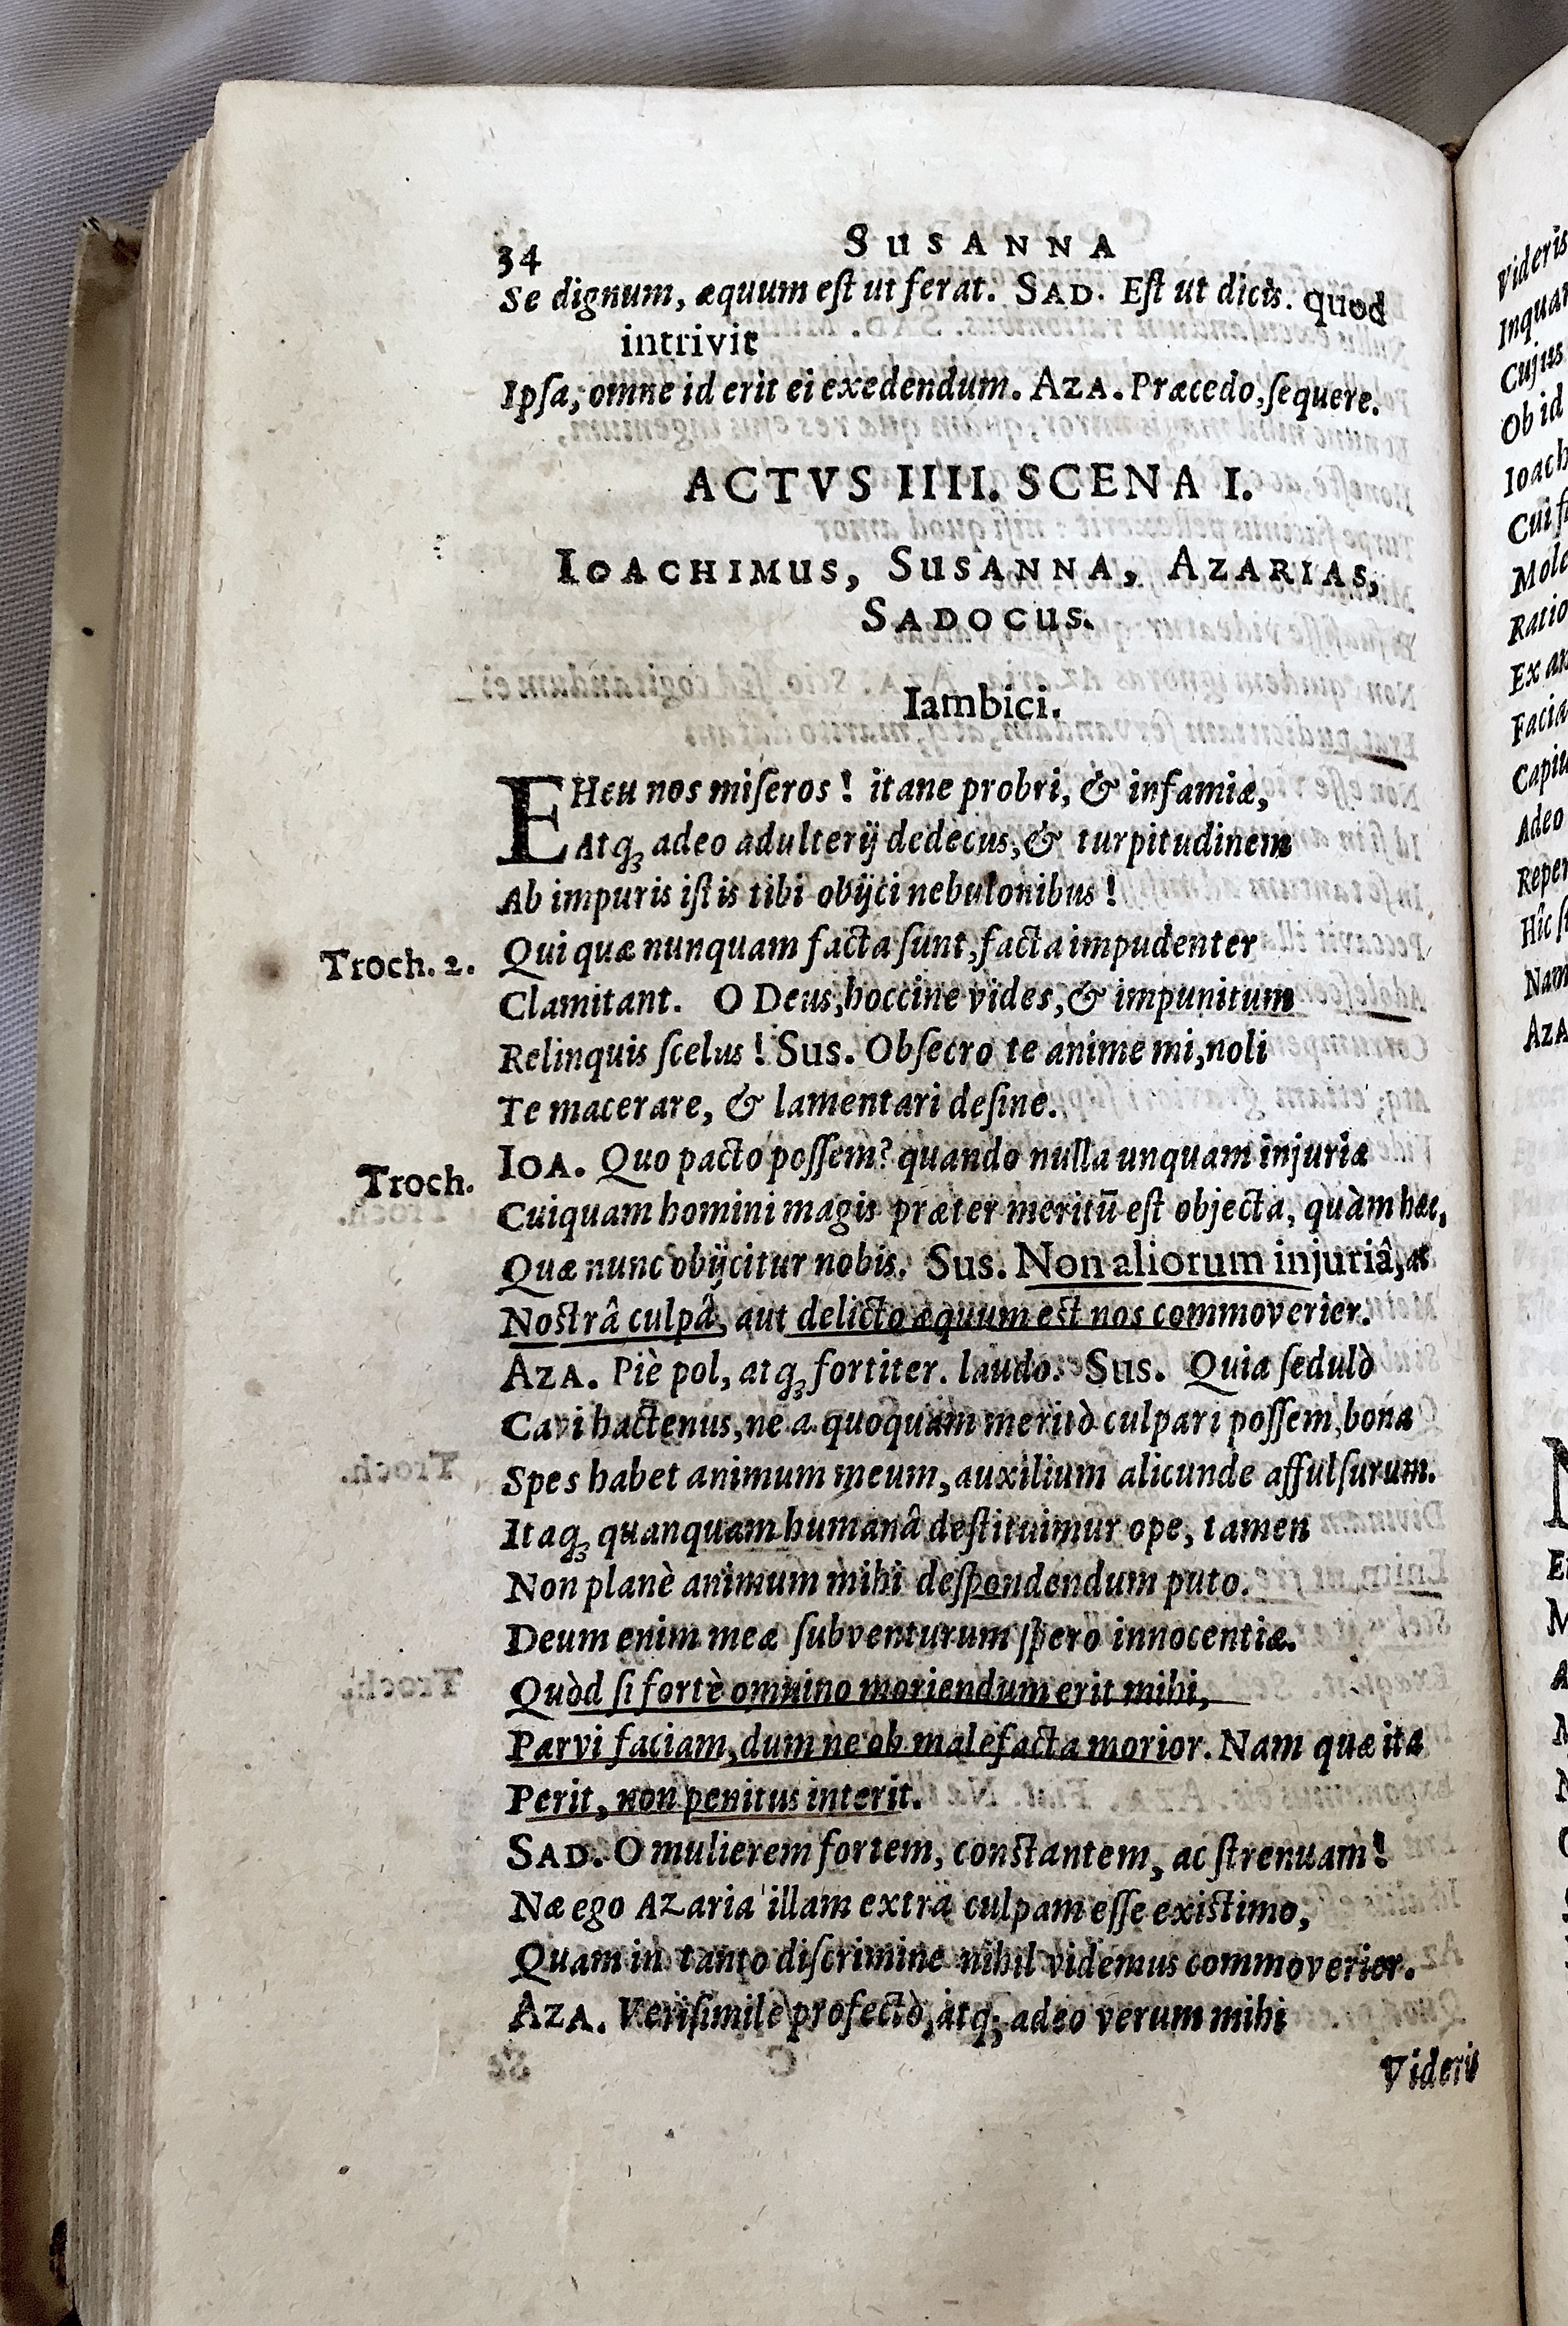 34 SUSANNA
Se dignum, æquum eſt ut ferat. SAD. Eſt ut dicis. quod
intrivit
Ipſa, omne id erit ei exedendum. AZA. Præcedo, ſequere.
ACTVS IIII. SCENA I.
IOACHIMUS, SUSANNA, AZARIAS,
SADOCUS.
Iambici.
EHeu nos miſeros! itane probri, & infamiæ,
Atq; adeo adulterij dedecus, & turpitudinem
Ab impuris iſtis tibi obijci nebulonibus!
Troch. 2. Qui quæ nunquam facta ſunt, facta impudenter
Clamitant. O Deus, hoccine vides, & impunitum
Relinquis ſcelus! Sus. Obſecro te anime mi, noli
Te macerare, & lamentari deſine.
Troch. IOA. Quo pacto poſſem? quando nulla unquam injuria
Cuiquam homini magis præter meritū eſt objecta, quàm hæc,
Quæ nunc obijcitur nobis. Sus. Non aliorum injuriâ, at
Noſtrâ culpâ, aut delicto æquum eſt nos commoverier.
AZA. Piè pol, atq; fortiter. laudo. Sus. Quia ſedulò
Cavi hactenus, ne a quoquam meritò culpari poſſem, bona
Spes habet animum meum, auxilium alicunde affulſurum.
Itaq; quanquam humanâ deſtituimur ope, tamen
Non planè animum mihi deſpondendum puto.
Deum enim meæ ſubventurum ſpero innocentiæ.
Quòd ſi fortè omnino moriendum erit mihi,
Parvi faciam, dum ne ob malefacta morior. Nam quæ ita
Perit, non penitus interit.
SAD. O mulierem fortem, conſtantem, ac ſtrenuam!
Næ ego Azaria illam extra culpam eſſe exiſtimo,
Quam in tanto diſcrimine nihil videmus commoverier.
AZA. Veriſimile profectò, atq; adeo verum mihi
Videris
Videris
Inquam
Cujus
Ob id
Ioach
Cui ſi
Mole
Ratio
Ex an
Facia
Capiu
Adeo
Reper
Hic ſu
Nam
AZA